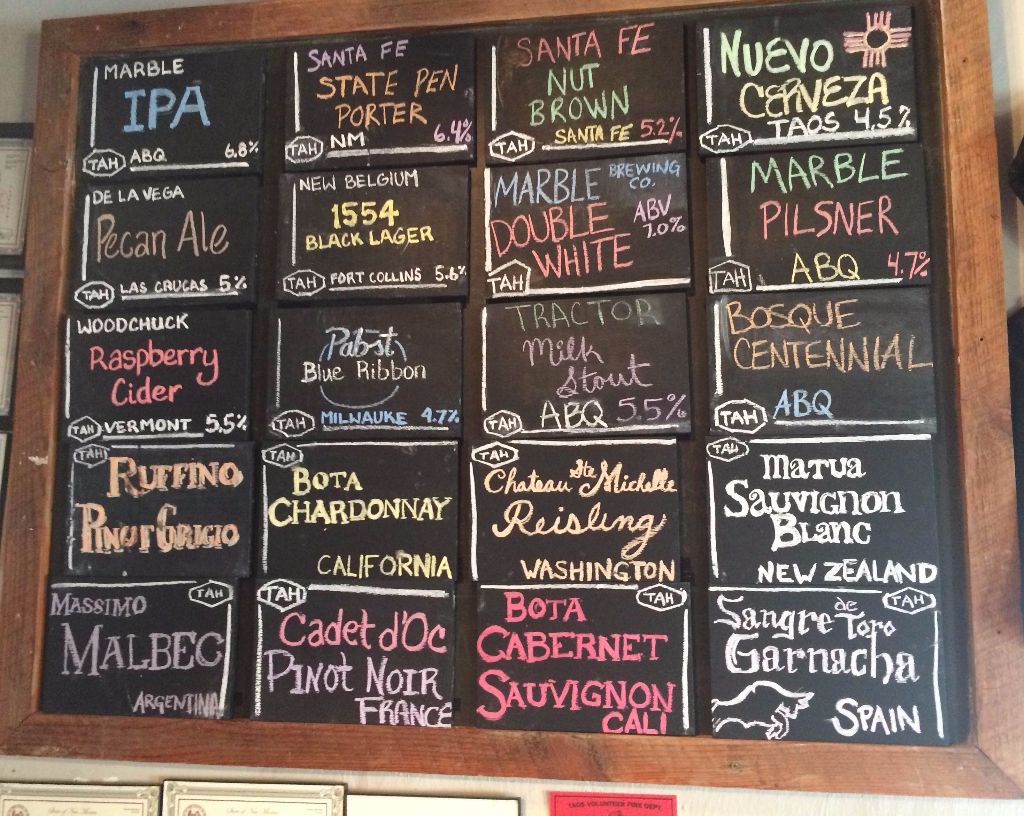 MARBLE
IPA
TAH ABQ 6.8%
SANTA FE
STATE PEN
PORTER
TAH NM 6.4%
SANTA FE
NUT
BROWN
TAH SANTA FE 5.2%
NUEVO
CERVEZA
TAH TAOS 4.5%
DE LA VEGA
Pecan Ale
TAH LAS CRUCAS 5%
NEW BELGIUM
1554
BLACK LAGER
TAH FORT COLLINS 5.6%
MARBLE BREWING CO.
DOUBLE ABV
WHITE 7.0%
TAH
MARBLE
PILSNER
TAH ABQ 4.7%
WOODCHUCK
Raspberry
Cider
TAH VERMONT 5.5%
Pabst
Blue Ribbon
TAH MILWAUKE 4.7%
TRACTOR
Milk
Stout
TAH ABQ 5.5%
BOSQUE
CENTENNIAL
TAH ABQ
TAH
RUFFINO
PINOT GRIGIO
TAH
BOTA
CHARDONNAY
CALIFORNIA
TAH
Chateau Ste Michelle
Reisling
WASHINGTON
TAH
MATUA
SAUVIGNON
BLANC
NEW ZEALAND
TAH
MASSIMO
MALBEC
ARGENTINA
TAH
Cadet d'Oc
PINOT NOIR
FRANCE
TAH
BOTA
CABERNET
SAUVIGNON
CALI
TAH
Sangre de Toro
Garnacha
SPAIN
TAOS VOLUNTEER FIRE DEPT